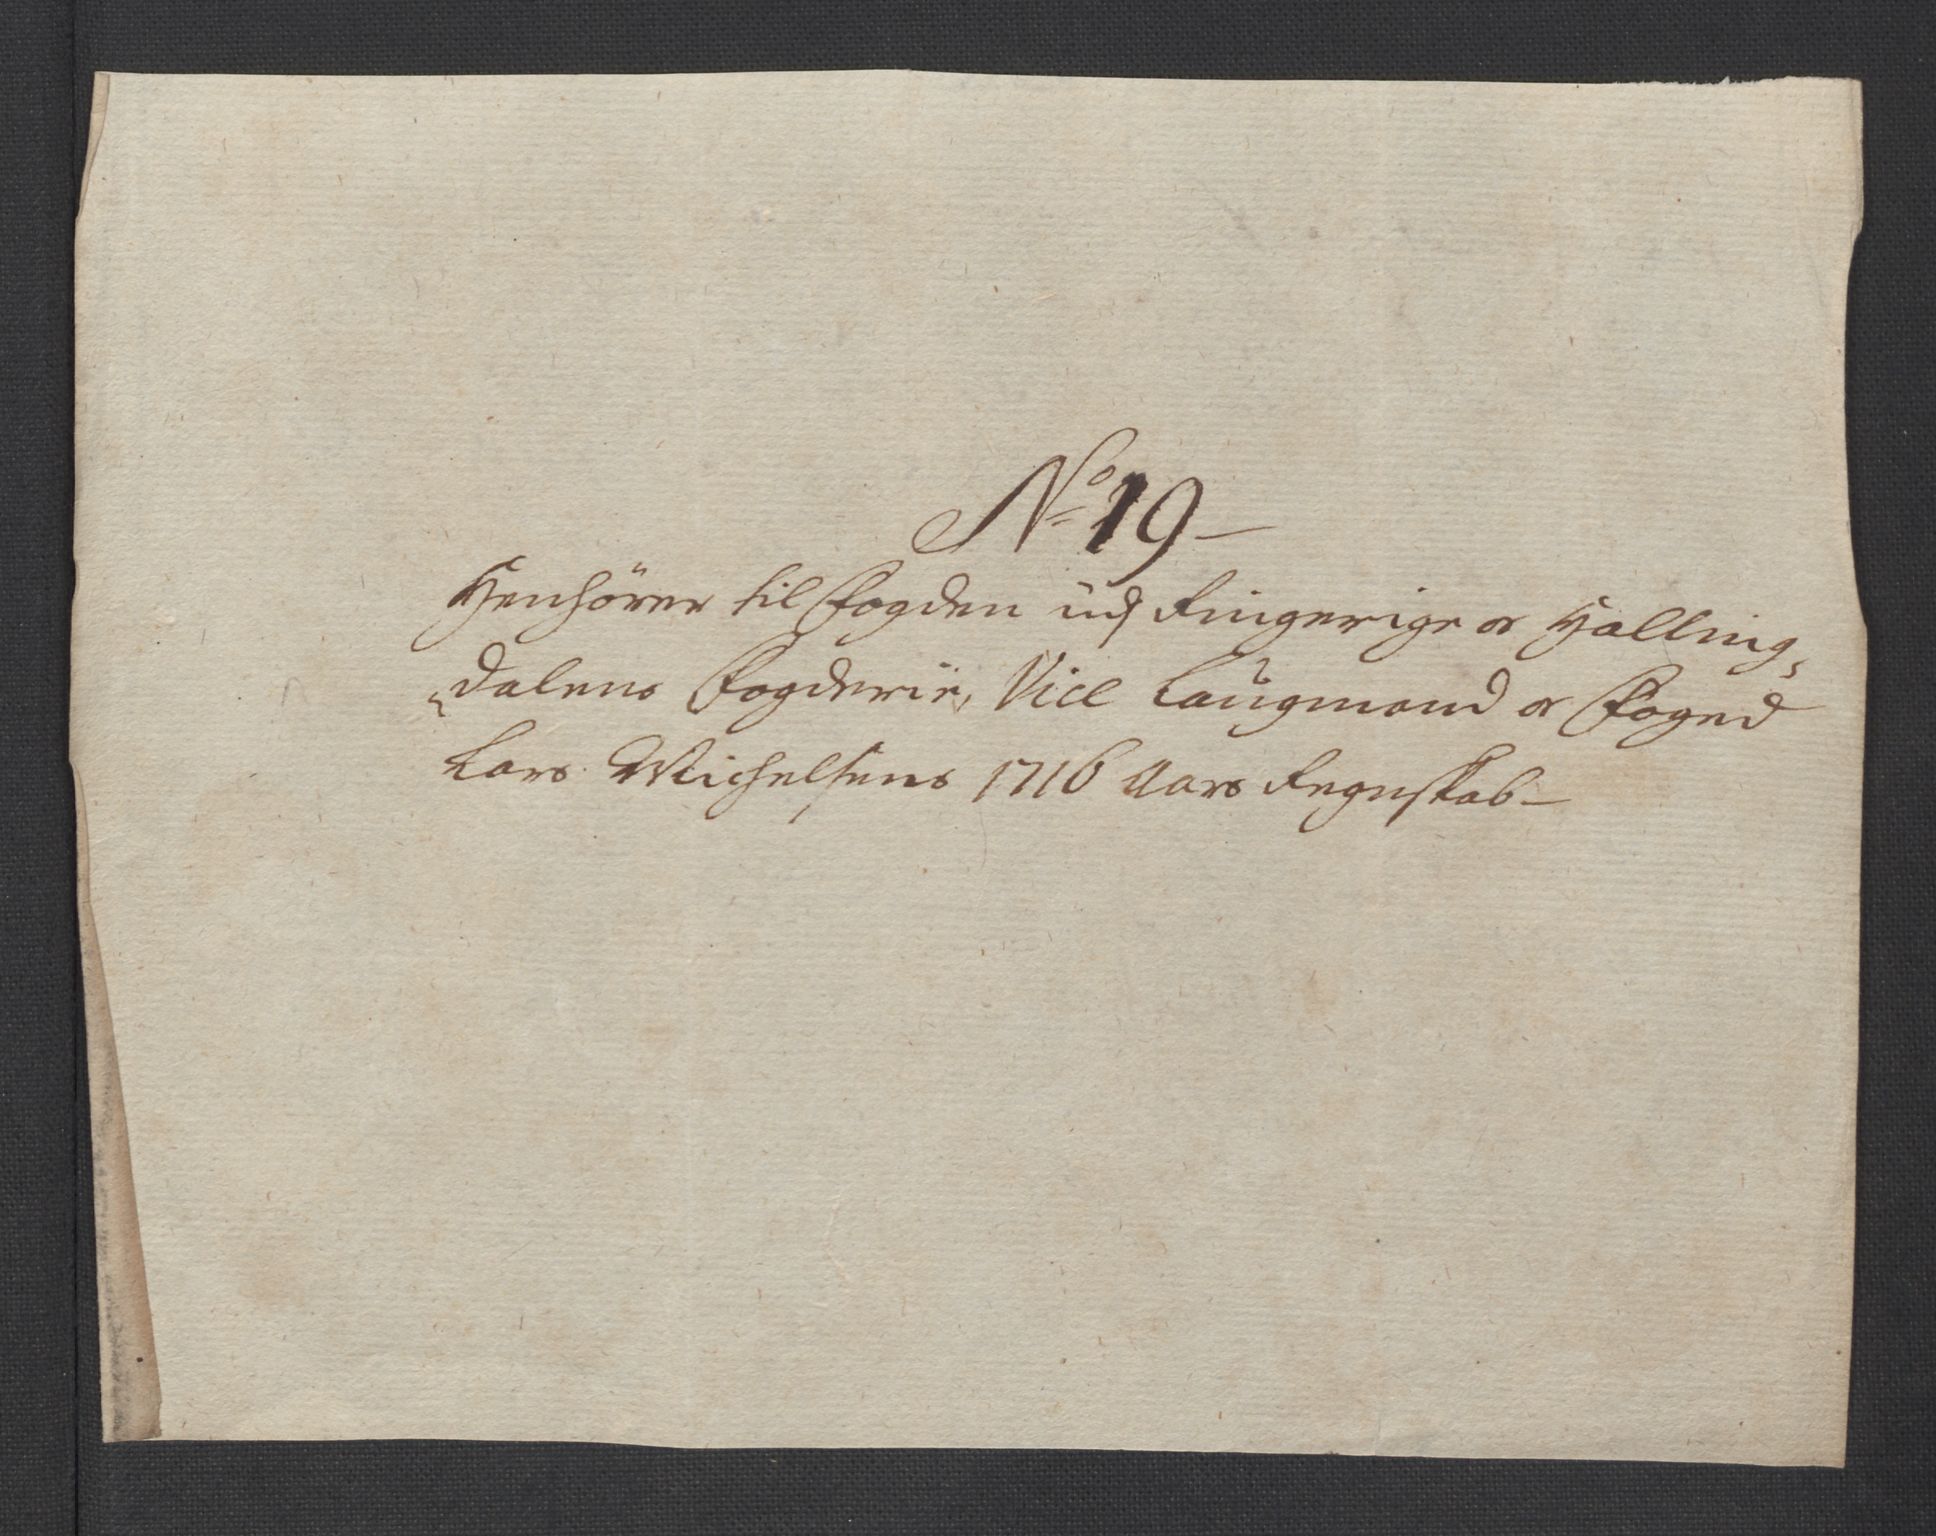 No 19 -
Henhörer til Fogden udj Ringerige or Halling,
dalens Fogderie, Vice Laugmand or Foged
Lars Michelsens 1716 Aars Regnskab -